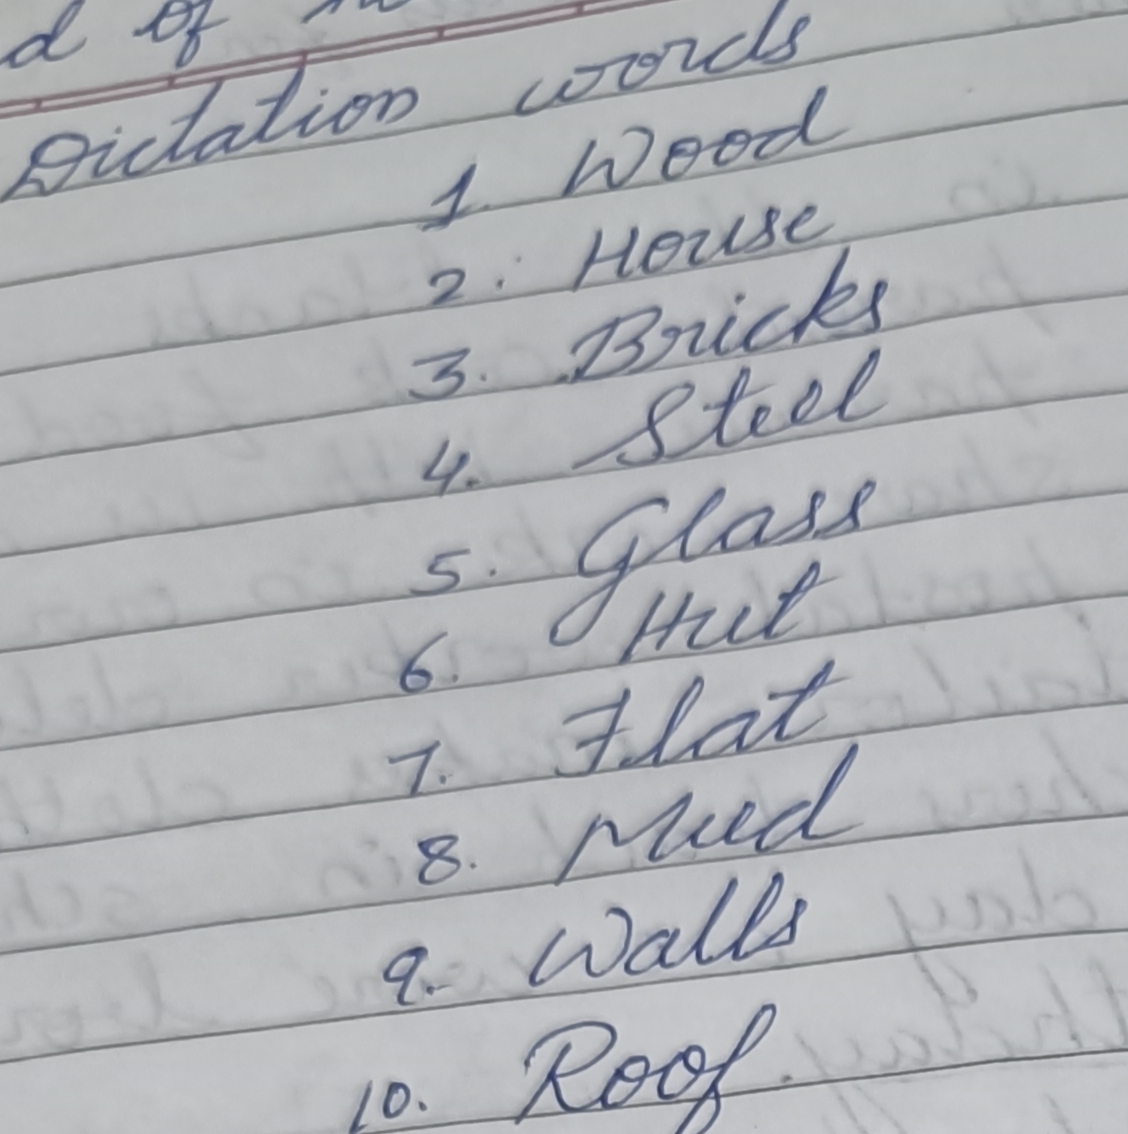 d of
Dictation words
1. Wood
2. House
3. Bricks
4. Steel
5. Glass
6. Hut
7. Flat
8. Mud
9. Walls
10. Roof.